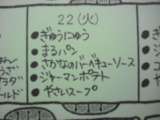 22(火)
●ぎゅうにゅう
●まるパン
●さかなのバーベキューソース
●ジャーマンポテト
●やさいスープ